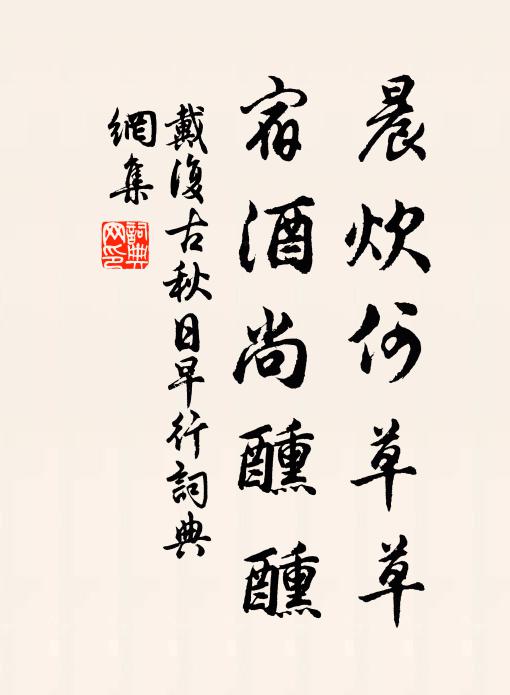 晨炊何草草
宿酒尚醺醺
戴復古秋日早行詞典
網集
詞典
网印